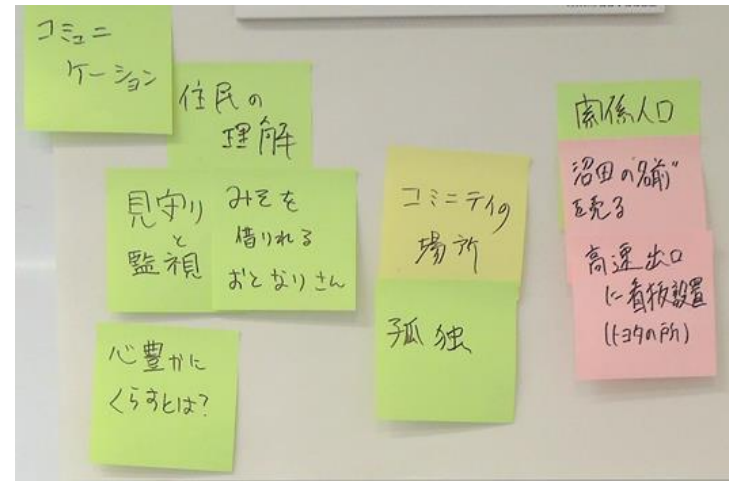 コミュニ
ケーション
住民の
理解
見守り
と
監視
みそを
借りれる
おとなりさん
心豊かに
くらすとは?
コミニティの
場所
孤独
関係人口
沼田の"名前"
を売る
高速出口
に看板設置
(トヨタの所)